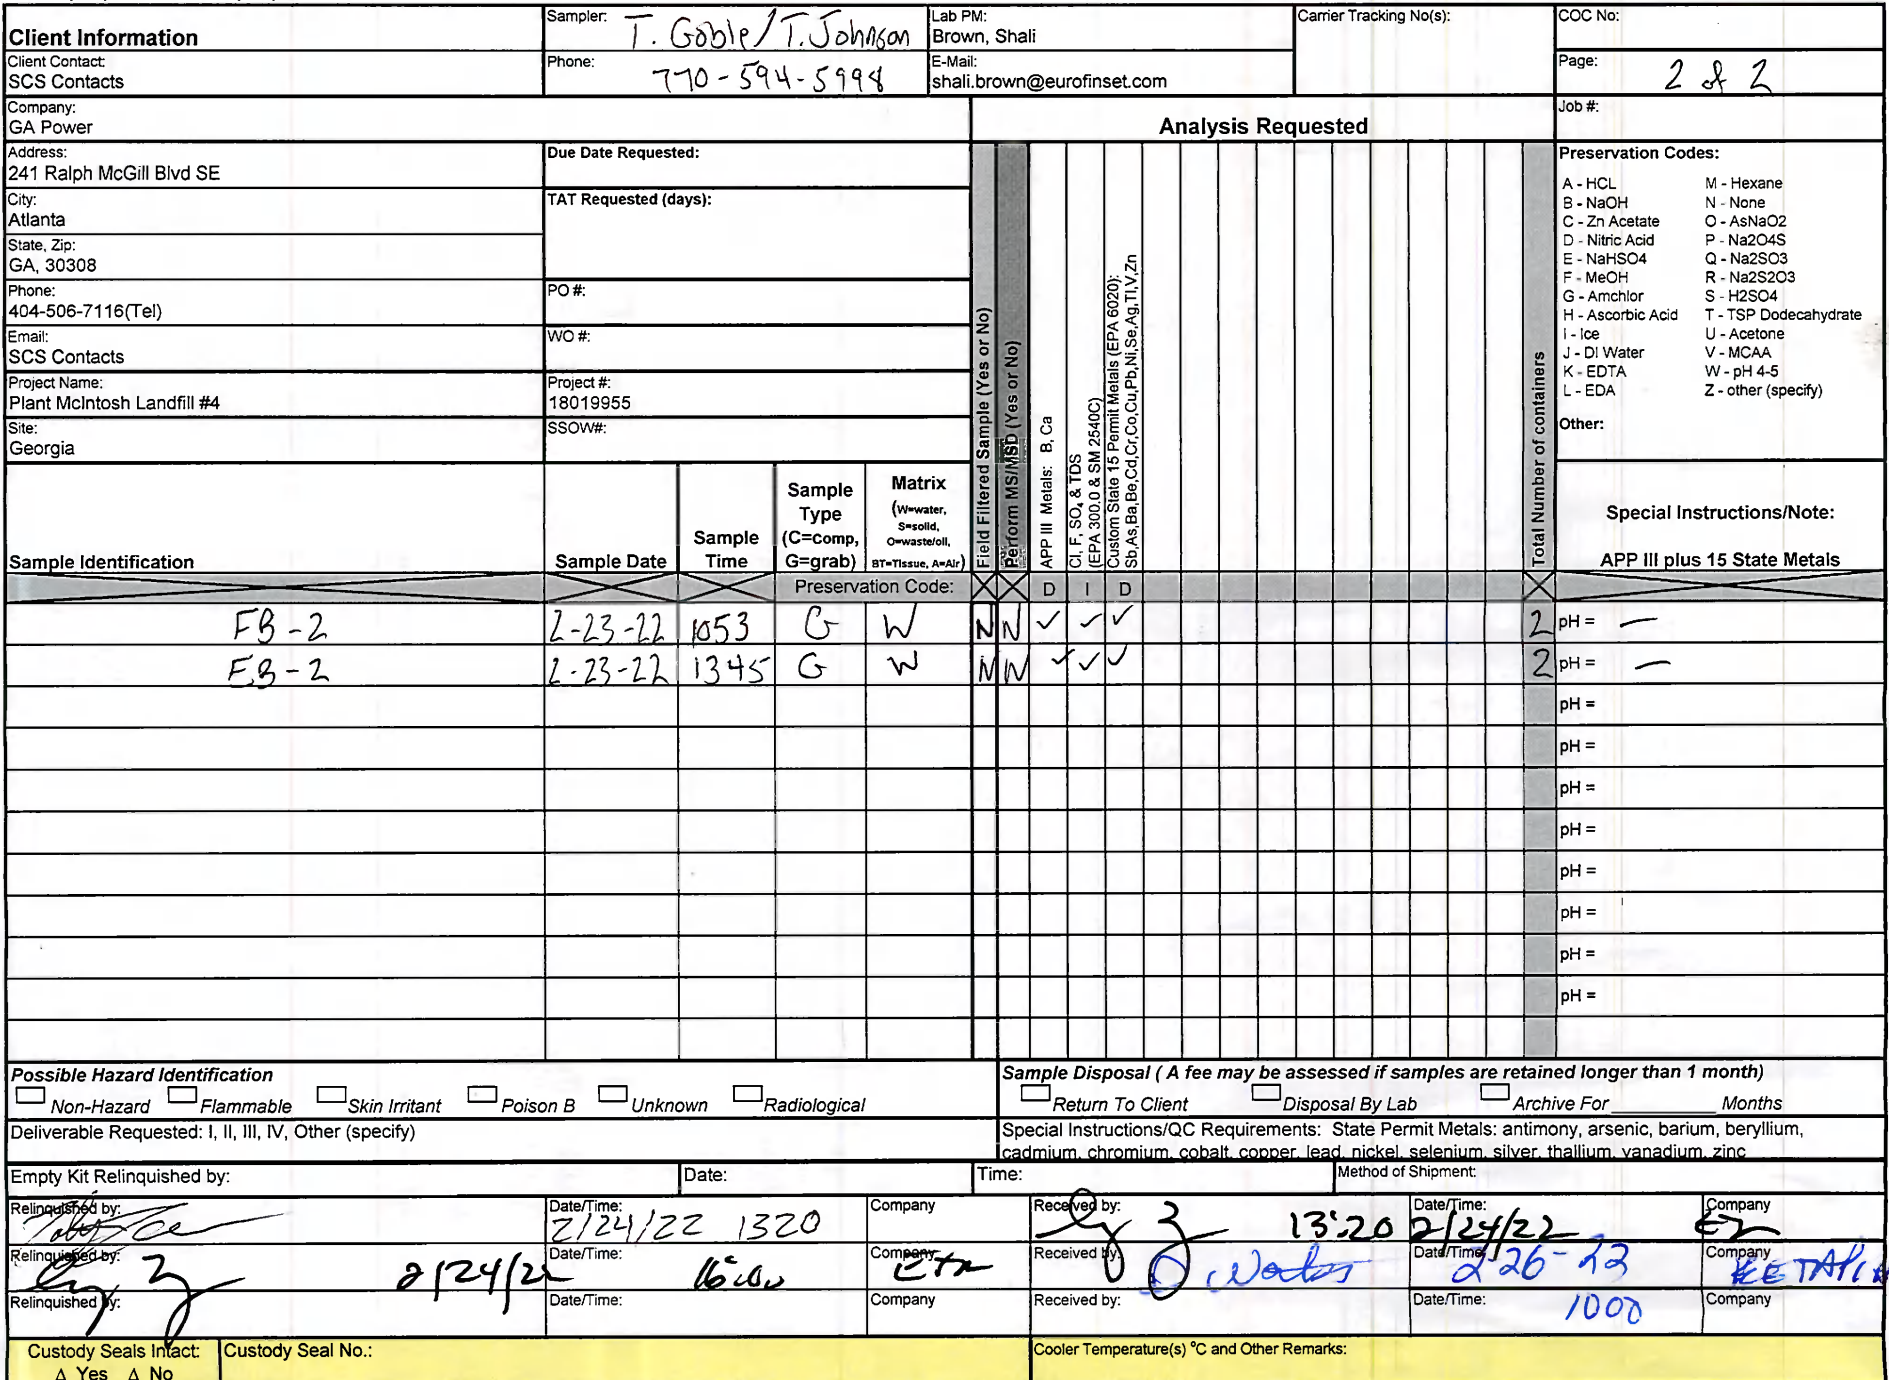 Client Information
Sampler: T. Goble/T. Johnson
Lab PM:
Brown, Shali
Carrier Tracking No(s):
COC No:
Client Contact:
SCS Contacts
Phone: 770-594-5998
E-Mail:
shali.brown@eurofinset.com
Page: 2 of 2
Company:
GA Power
Analysis Requested
Job #:
Address:
241 Ralph McGill Blvd SE
Due Date Requested:
City:
Atlanta
TAT Requested (days):
State, Zip:
GA, 30308
Phone:
404-506-7116(Tel)
PO #:
Email:
SCS Contacts
WO #:
Project Name:
Plant McIntosh Landfill #4
Project #:
18019955
Site:
Georgia
SSOW#:
Preservation Codes:
A - HCL M - Hexane
B - NaOH N - None
C - Zn Acetate O - AsNaO2
D - Nitric Acid P - Na2O4S
E - NaHSO4 Q - Na2SO3
F - MeOH R - Na2S2O3
G - Amchlor S - H2SO4
H - Ascorbic Acid T - TSP Dodecahydrate
I - Ice U - Acetone
J - DI Water V - MCAA
K - EDTA W - pH 4-5
L - EDA Z - other (specify)
Other:
Sample Identification
Sample Date
Sample
Time
Sample
Type
(C=comp,
G=grab)
Matrix
(W=water,
S=solid,
O=waste/oil,
BT=Tissue, A=Air)
Field Filtered Sample (Yes or No)
Perform MS/MSD (Yes or No)
APP III Metals: B, Ca
Cl, F, SO₄ & TDS
(EPA 300.0 & SM 2540C)
Custom State 15 Permit Metals (EPA 6020):
Sb,As,Ba,Be,Cd,Cr,Co,Cu,Pb,Ni,Se,Ag,Tl,V,Zn
Total Number of containers
Special Instructions/Note:
APP III plus 15 State Metals
Preservation Code: D I D
FB-2 2-23-22 1053 G W N N ✓ ✓ ✓ 2 pH = —
EB-2 2-23-22 1345 G W N N ✓ ✓ ✓ 2 pH = —
pH =
pH =
pH =
pH =
pH =
pH =
pH =
pH =
Possible Hazard Identification
Non-Hazard Flammable Skin Irritant Poison B Unknown Radiological
Sample Disposal ( A fee may be assessed if samples are retained longer than 1 month)
Return To Client Disposal By Lab Archive For ______ Months
Deliverable Requested: I, II, III, IV, Other (specify)
Special Instructions/QC Requirements: State Permit Metals: antimony, arsenic, barium, beryllium,
cadmium, chromium, cobalt, copper, lead, nickel, selenium, silver, thallium, vanadium, zinc
Empty Kit Relinquished by: Date: Time: Method of Shipment:
Relinquished by: Date/Time: 2/24/22 1320 Company Received by: 13:20 Date/Time: 2/24/22 Company
Relinquished by: 2/24/22 Date/Time: Company Received by: Date/Time: Company
Relinquished by: Date/Time: Company Received by: Date/Time: 1000 Company
Custody Seals Intact:
Δ Yes Δ No
Custody Seal No.:
Cooler Temperature(s) °C and Other Remarks: